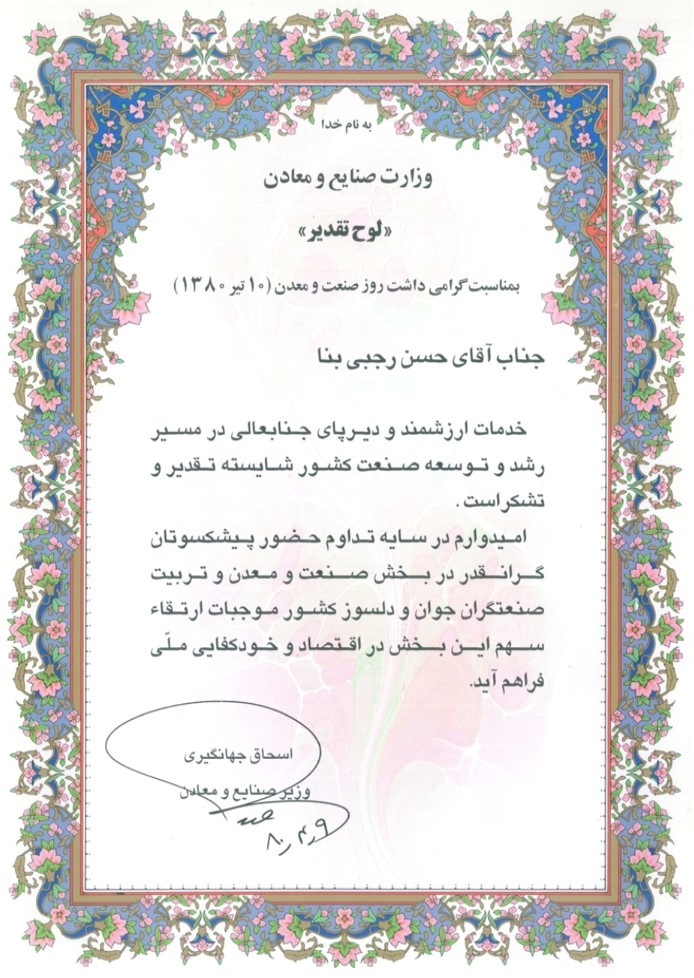 به نام خدا
وزارت صنایع و معادن
«لوح تقدیر»
بمناسبت گرامی داشت روز صنعت و معدن (۱۰ تیر ۱۳۸۰)
جناب آقای حسن رجبی بنا
خدمات ارزشمند و دیرپای جنابعالی در مسیر
رشد و توسعه صنعت کشور شایسته تقدیر و
تشکراست.
امیدوارم در سایه تداوم حضور پیشکسوتان
گرانقدر در بخش صنعت و معدن و تربیت
صنعتگران جوان و دلسوز کشور موجبات ارتقاء
سهم این بخش در اقتصاد و خودکفایی ملّی
فراهم آید.
اسحاق جهانگیری
وزیر صنایع و معادن